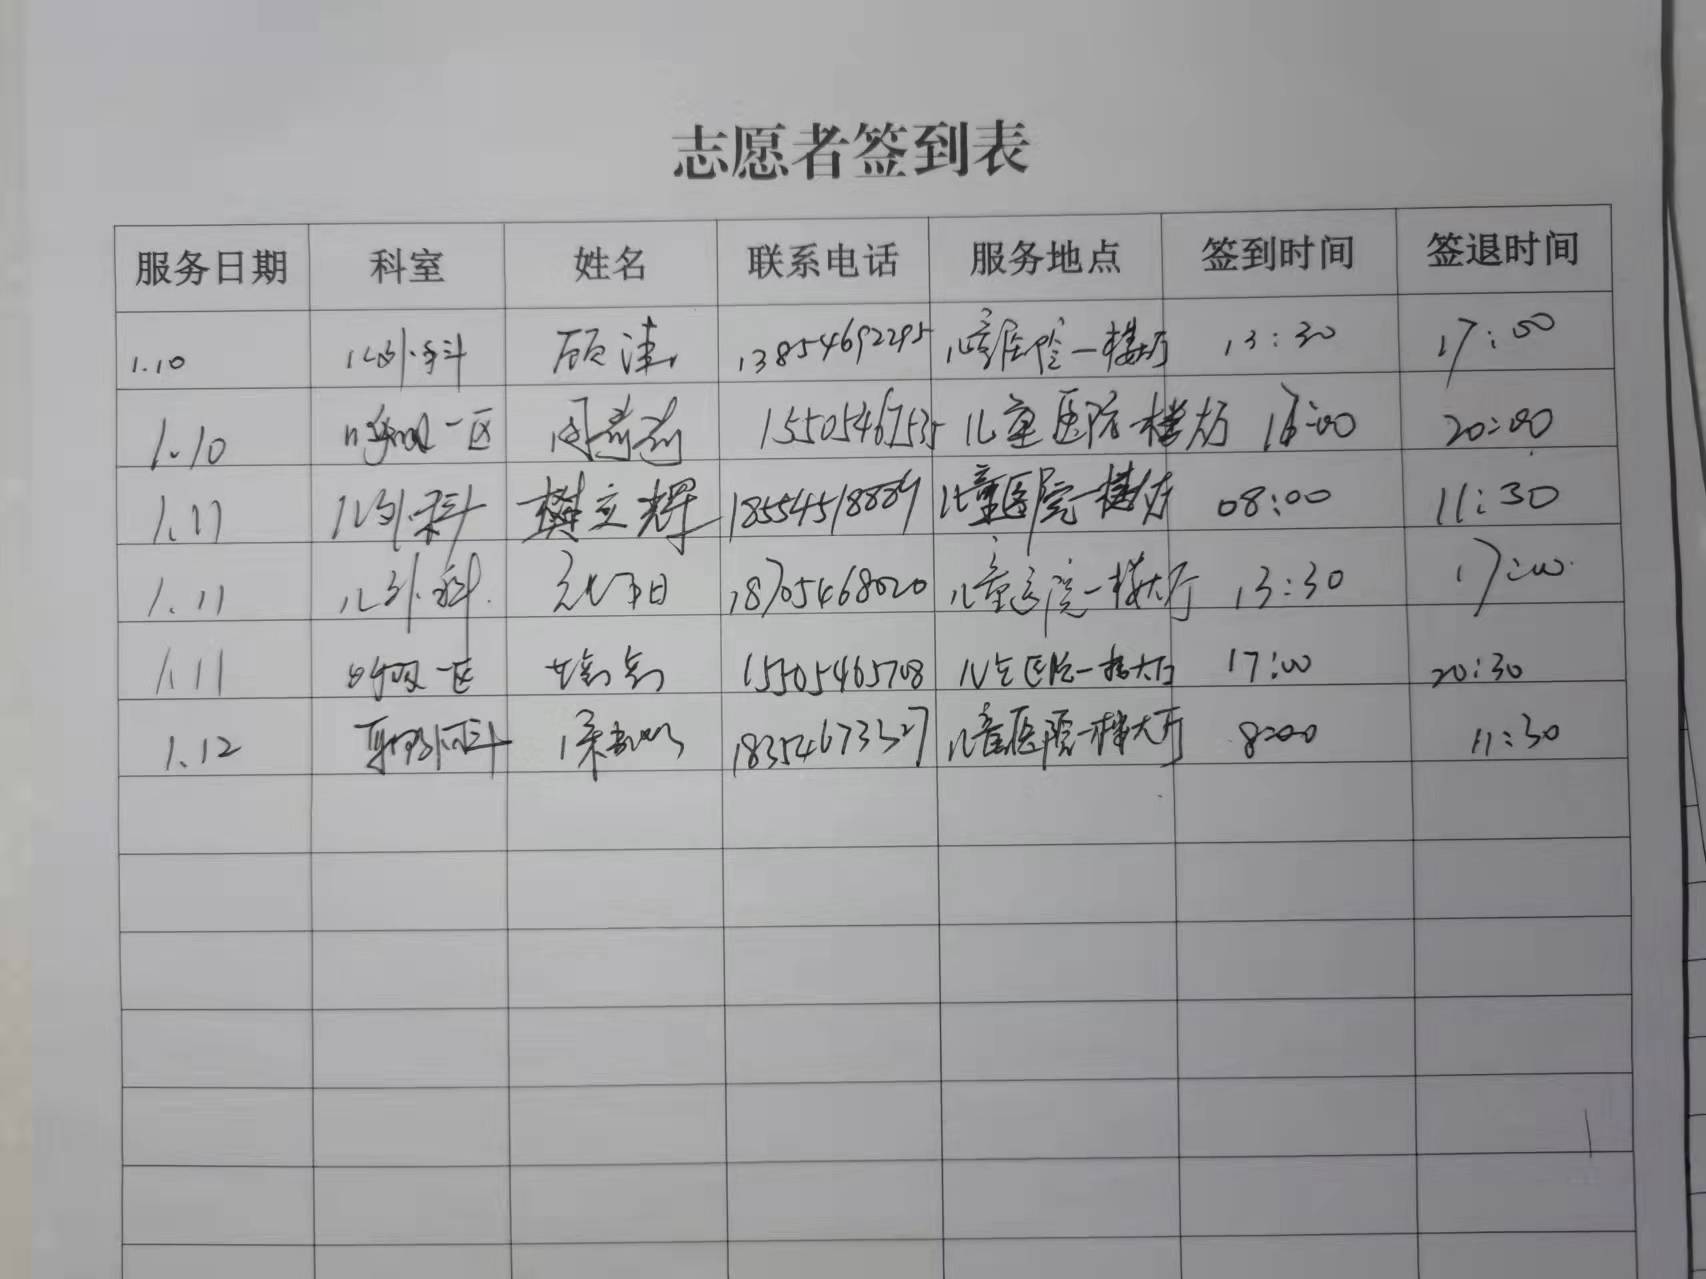 志愿者签到表
服务日期 科室 姓名 联系电话 服务地点 签到时间 签退时间
1.10 儿外科 顾 13854692295 儿童医院一楼大厅 13:30 17:00
1.10 呼吸一区 周 儿童医院一楼大厅 20:00
1.11 儿外科 樊立辉 儿童医院一楼大厅 08:00 11:30
1.11 儿外科 18705468020 儿童医院一楼大厅 13:30 17:00
1.11 呼吸一区 15505465708 儿童医院一楼大厅 17:00 20:30
1.12 18354673327 儿童医院一楼大厅 8:00 11:30